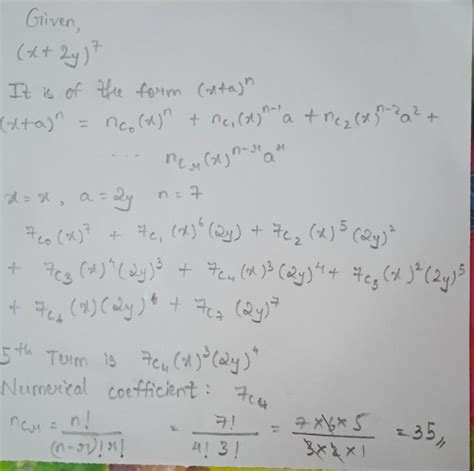 Given,
(x + 2y)⁷
It is of the form (x+a)ⁿ
(x+a)ⁿ = nc₀(x)ⁿ + nc₁(x)ⁿ⁻¹a + nc₂(x)ⁿ⁻²a² +
... ncᵣ(x)ⁿ⁻ʳaʳ
x = x, a = 2y n = 7
7c₀(x)⁷ + 7c₁(x)⁶(2y) + 7c₂(x)⁵(2y)²
+ 7c₃(x)⁴(2y)³ + 7c₄(x)³(2y)⁴ + 7c₅(x)²(2y)⁵
+ 7c₆(x)(2y)⁶ + 7c₇(2y)⁷
5th Term is 7c₄(x)³(2y)⁴
Numerical coefficient : 7c₄
ncᵣ = n!/(n-r)!r! = 7!/4!3! = 7×6×5/3×2×1 = 35,,